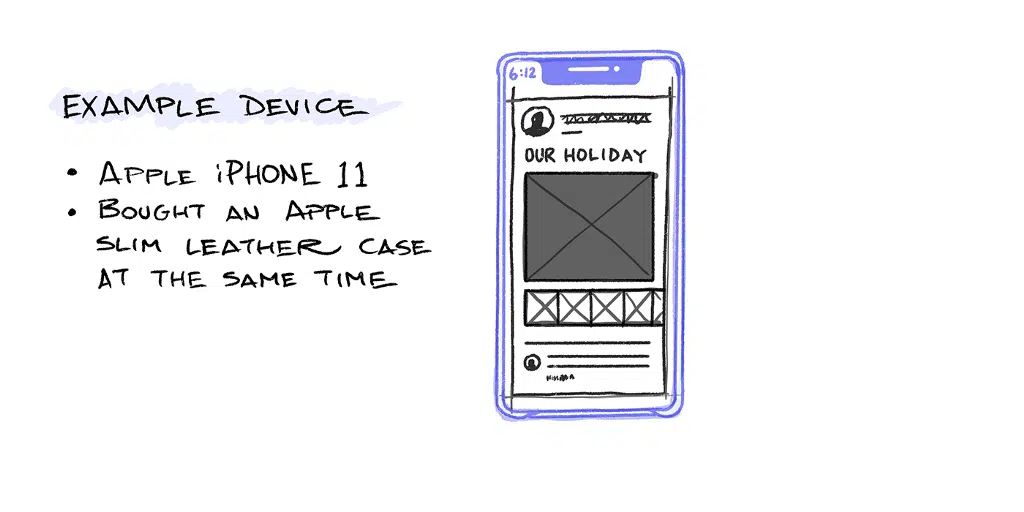 EXAMPLE DEVICE
• APPLE iPHONE 11
• BOUGHT AN APPLE
SLIM LEATHER CASE
AT THE SAME TIME
6:12
OUR HOLIDAY